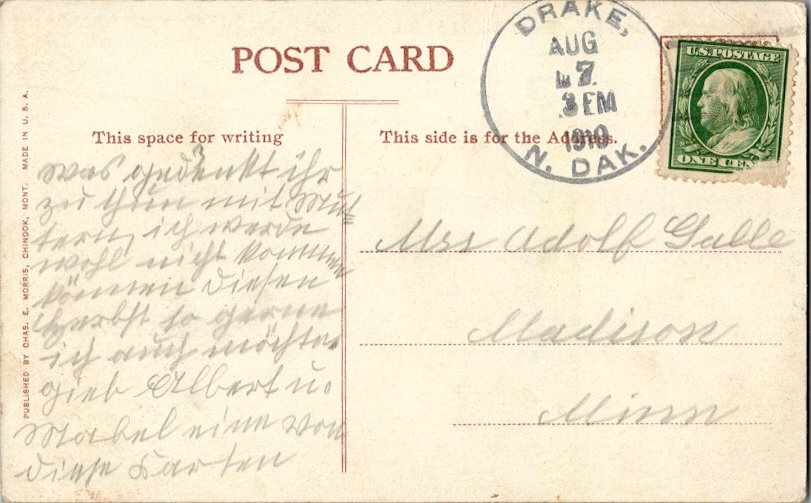 POST CARD
This space for writing
This side is for the Address.
DRAKE,
AUG
7
3 PM
1910
N. DAK.
U.S. POSTAGE
ONE CEN
PUBLISHED BY CHAS. E. MORRIS, CHINOOK, MONT. MADE IN U. S. A.
was gedenkt ihr
zu thun mit Mut-
tern, ich werde
wohl nicht kommen
können diesen
Herbst so gerne
ich auch möchte.
gieb Albert u.
Mabel eine von
diese Karten
Mrs Adolf Galle
Madison
Minn